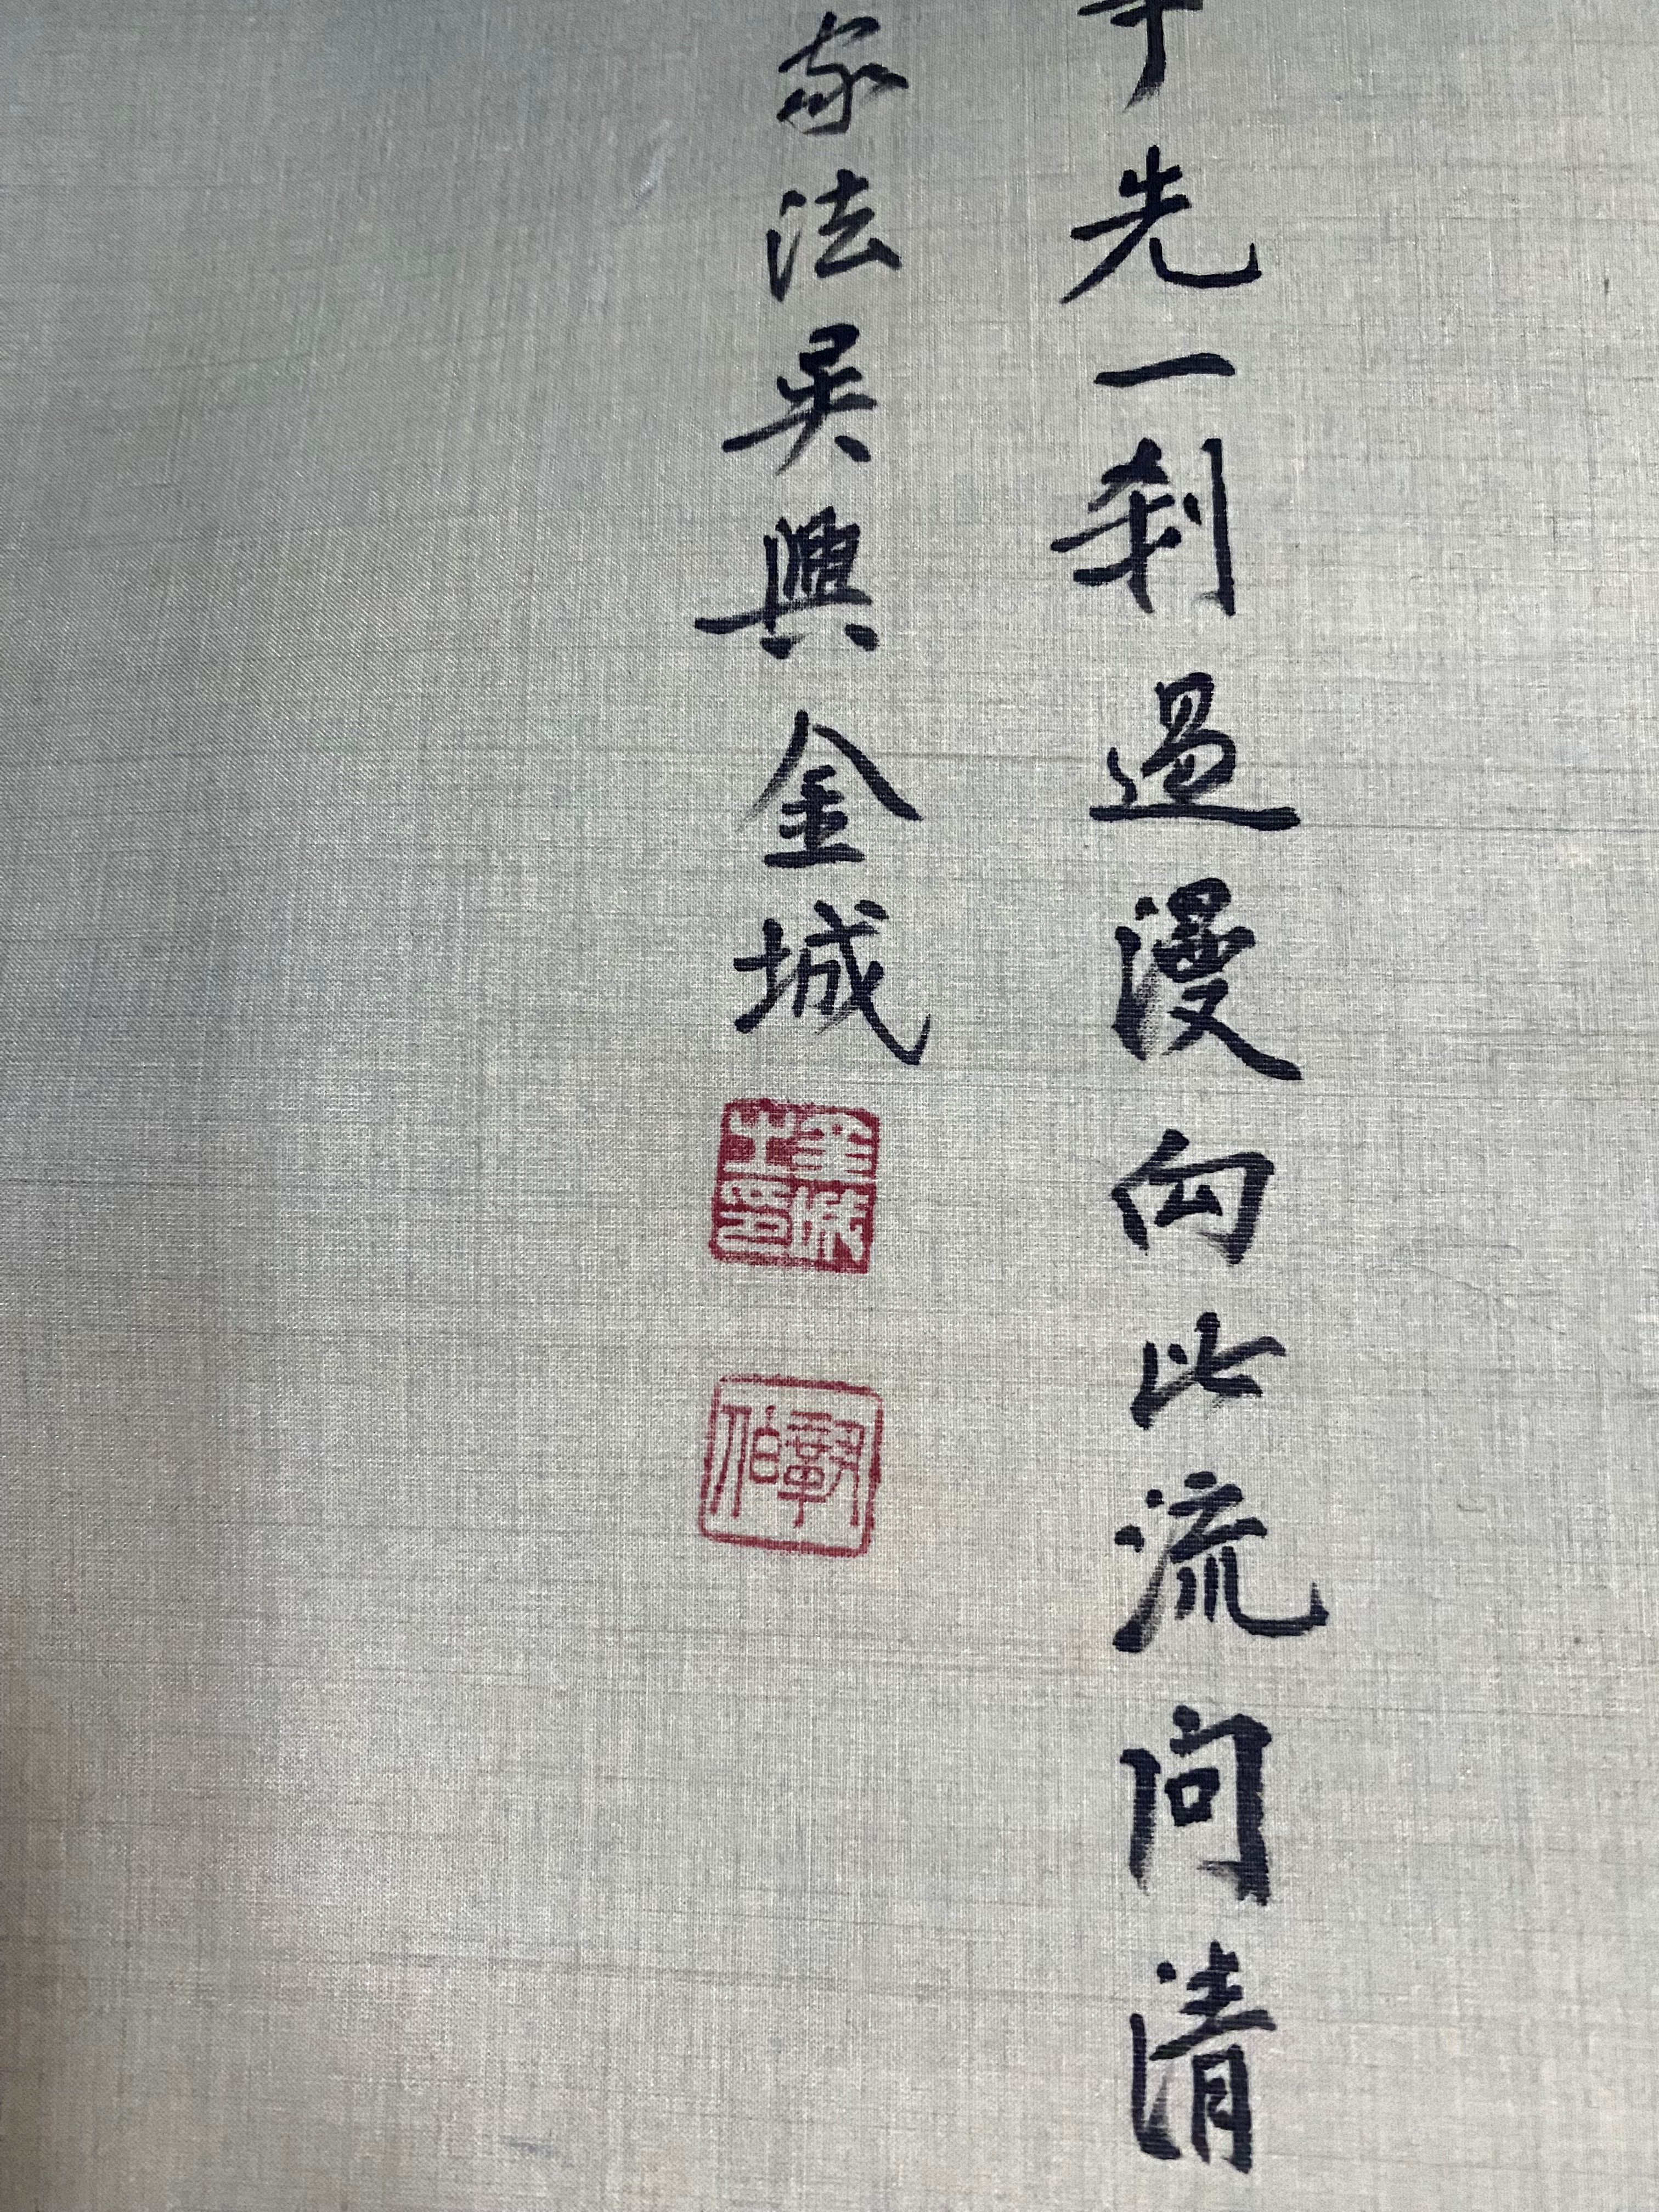 先一刹過漫向此流問清
家法吳興金城
金城之印
伯